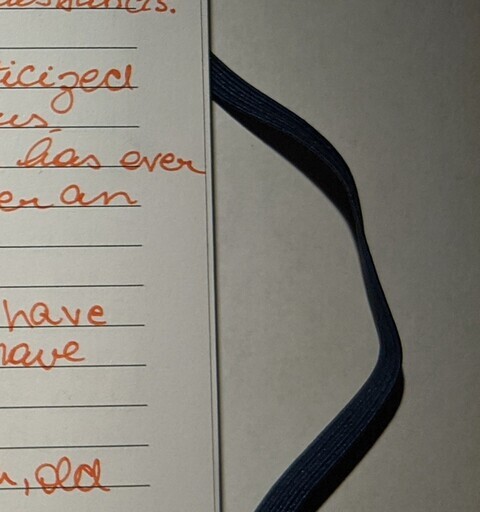 ticized
us
has ever
er an
have
have
, old